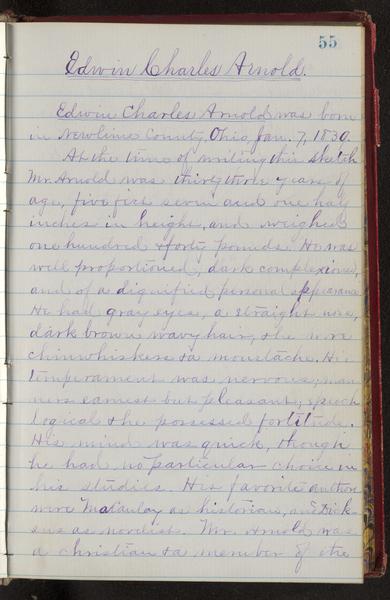 55
Edwin Charles Arnold.
Edwin Charles Arnold was born
in County, Ohio, Jan. 7, 1830.
At the time of writing this sketch
Mr. Arnold was thirty three years of
age, five feet seven and one half
inches in height, and weighed
one hundred & forty pounds. He was
well proportioned, dark complexion,
and of a dignified personal appearance.
He had gray eyes, a straight nose,
dark brown wavy hair, & he wore
chinwhiskers & a moustache. His
temperament was nervous; man-
ners earnest but pleasant; speech
logical & he possessed fortitude.
His mind was quick, though
he had no particular choice in
his studies. His favorite authors
were Macaulay as historian, and Dick-
ens as novelist. Mr. Arnold was
a christian & a member of the